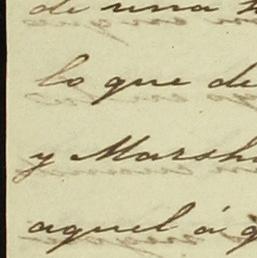 de una
lo que de
y Marsh
aquel á q